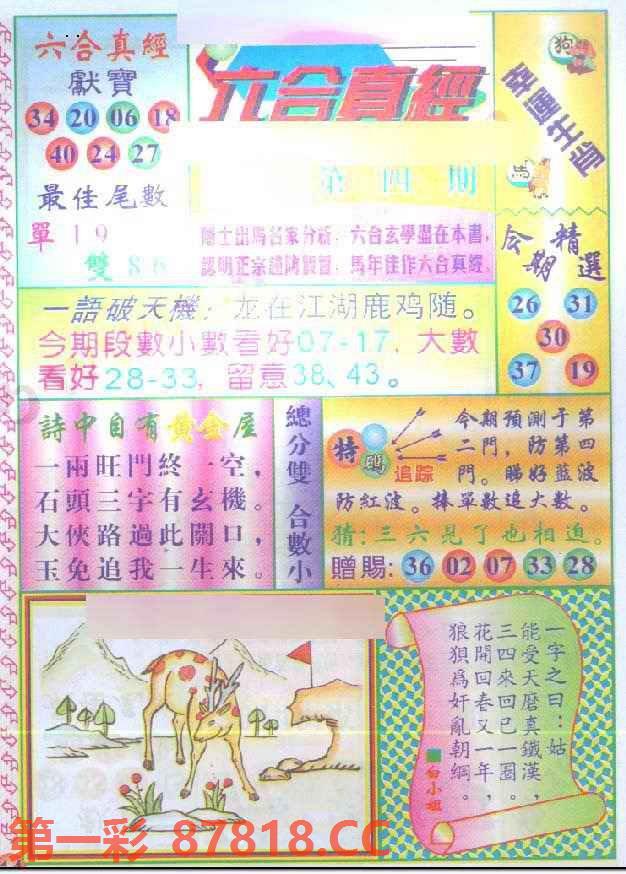 六合真經
獻寶
34 20 06 18
40 24 27
最佳尾數
單 1 9
雙 8 6
六合真經
第四期
幸運生肖
狗
馬
隱士出馬名家分析，六合玄學盡在本書，
認明正宗謹防假冒，馬年佳作六合真經。
今期精選
26 31
30
37 19
一語破天機：龙在江湖鹿鸡随。
今期段數小數看好07-17，大數
看好28-33，留意38、43。
詩中自有黃金屋
一兩旺門終一空，
石頭三字有玄機。
大俠路過此關口，
玉兔追我一生來。
總分雙 合數小
特碼
追踪
今期預測于第
二門，防第四
門。睇好蓝波
防紅波。捧單數追大數。
猜：三六見了也相迫。
贈賜：36 02 07 33 28
一字之曰：姑
能受天磨真鐵漢，
三四來回已一圈。
花開回春又一年，
狼狽爲奸亂朝綱。
白小姐
第一彩 87818.CC